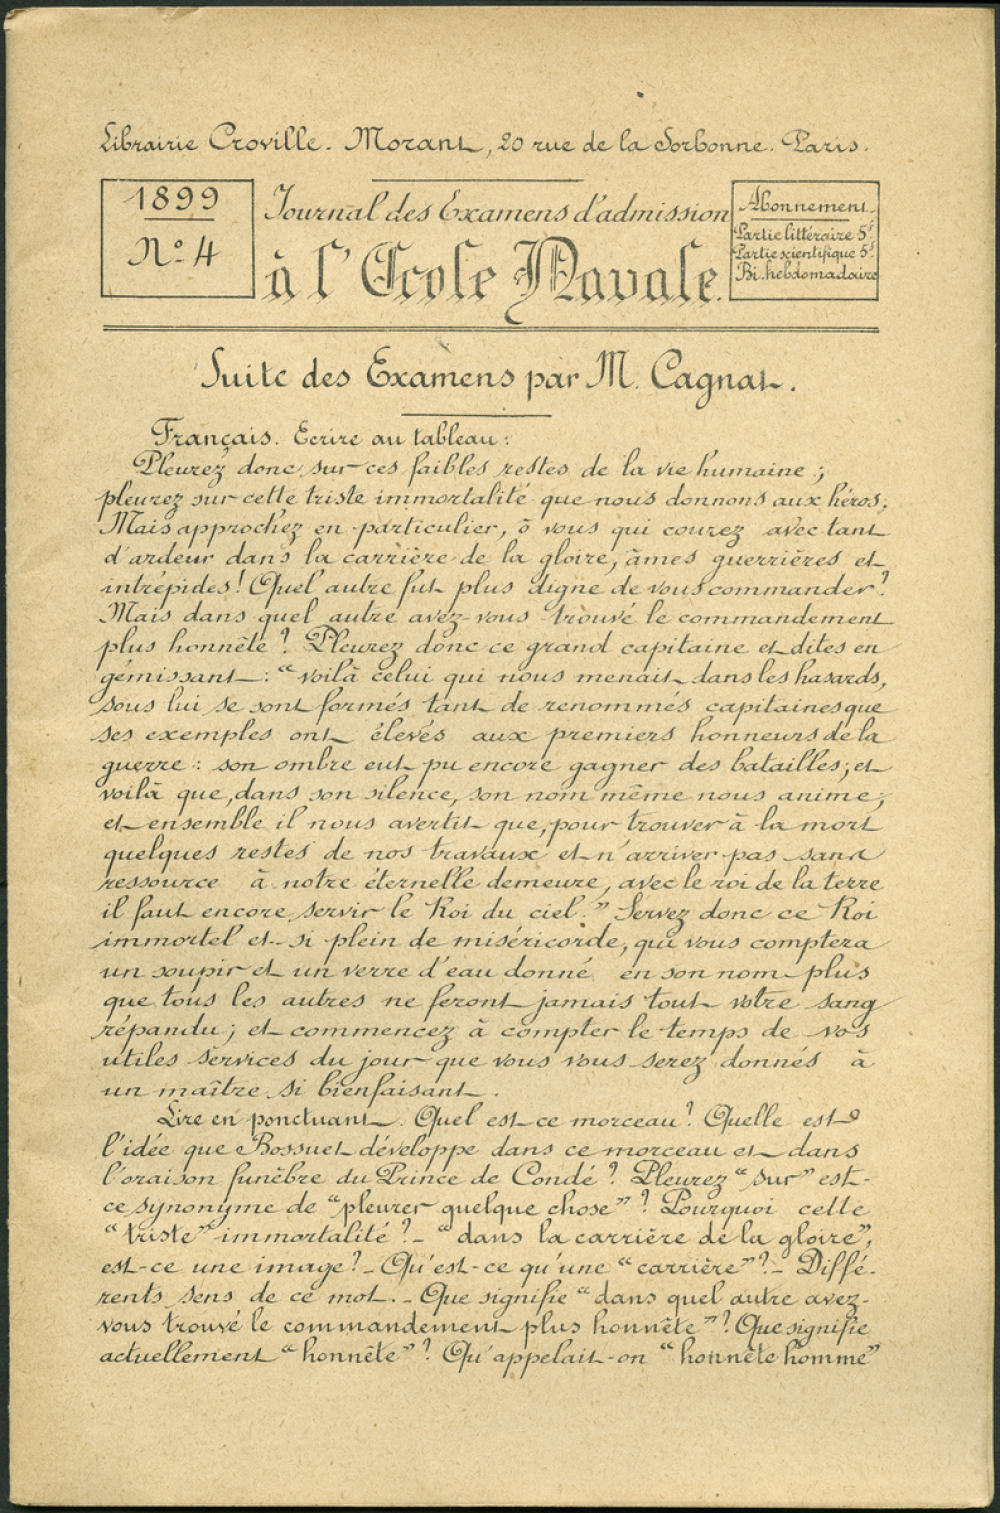 Librairie Croville-Morant, 20 rue de la Sorbonne. Paris.
1899
No 4
Journal des Examens d'admission
à l'Ecole Navale.
Abonnement
Partie littéraire 5f
Partie scientifique 5f
Bi-hebdomadaire
Suite des Examens par M. Cagnat.
Français. Ecrire au tableau:
Pleurez donc sur ces faibles restes de la vie humaine;
pleurez sur cette triste immortalité que nous donnons aux héros.
Mais approchez en particulier, ô vous qui courez avec tant
d'ardeur dans la carrière de la gloire, âmes guerrières et
intrépides! Quel autre fut plus digne de vous commander?
Mais dans quel autre avez-vous trouvé le commandement
plus honnête? Pleurez donc ce grand capitaine et dites en
gémissant: "voilà celui qui nous menait dans les hasards,
sous lui se sont formés tant de renommés capitaines que
ses exemples ont élevés aux premiers honneurs de la
guerre: son ombre eut pu encore gagner des batailles; et
voilà que, dans son silence, son nom même nous anime;
et ensemble il nous avertit que, pour trouver à la mort
quelques restes de nos travaux et n'arriver pas sans
ressource à notre éternelle demeure, avec le roi de la terre
il faut encore servir le Roi du ciel." Servez donc ce Roi
immortel et si plein de miséricorde, qui vous comptera
un soupir et un verre d'eau donné en son nom plus
que tous les autres ne feront jamais tout votre sang
répandu; et commencez à compter le temps de vos
utiles services du jour que vous vous serez donnés à
un maître si bienfaisant.
Lire en ponctuant. Quel est ce morceau? Quelle est
l'idée que Bossuet développe dans ce morceau et dans
l'oraison funèbre du Prince de Condé? Pleurez "sur" est-
ce synonyme de "pleurer quelque chose"? Pourquoi cette
"triste" immortalité? - "dans la carrière de la gloire",
est-ce une image? - Qu'est-ce qu'une "carrière"? - Diffé-
rents sens de ce mot. - Que signifie "dans quel autre avez-
vous trouvé le commandement plus honnête"? Que signifie
actuellement "honnête"? Qu'appelait-on "honnête homme"